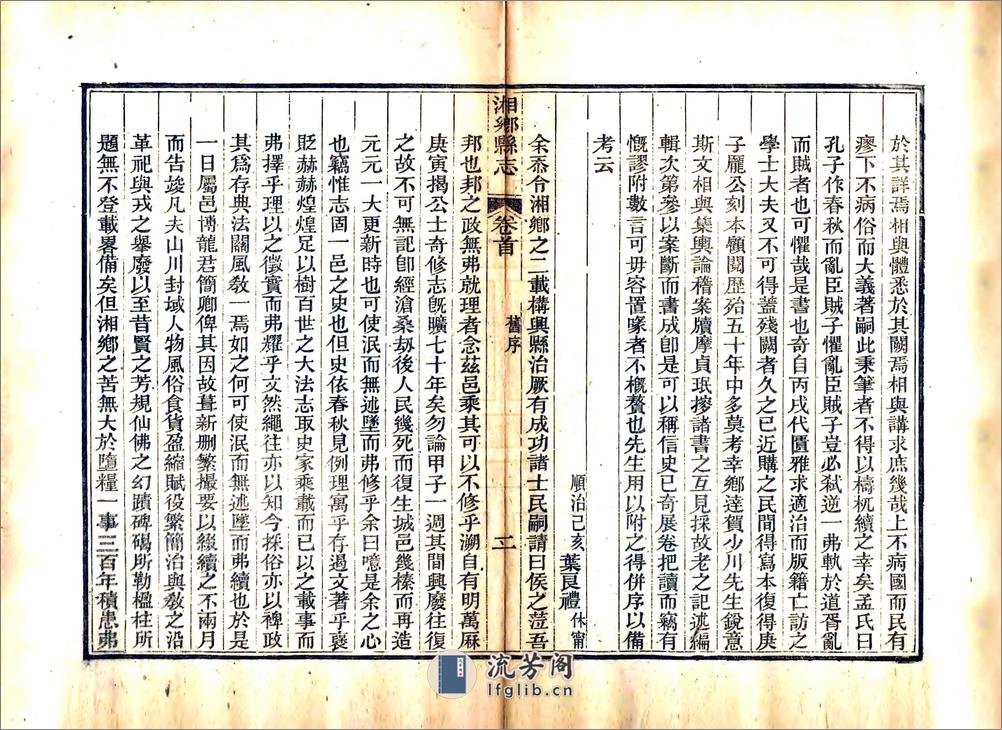 於其詳焉相與體悉於其闕焉相與講求庶幾哉上不病國而民有
瘳下不病俗而大義著嗣此秉筆者不得以檮杌續之幸矣孟氏曰
孔子作春秋而亂臣賊子懼亂臣賊子豈必弒逆一弗軌於道胥亂
而賊者也可懼哉是書也奇自丙戌代匱雅求適治而版籍亡訪之
學士大夫又不可得蓋殘闕者久之已近購之民間得寫本復得庚
子龐公刻本顧閱歷殆五十年中多莫考幸鄉達賀少川先生銳意
斯文相與集輿論稽案牘摩貞珉摉諸書之互見採故老之記述編
輯次第參以案斷而書成卽是可以稱信史已奇展卷把讀而竊有
慨謬附數言可毋容置喙者不概贅也先生用以附之得併序以備
考云
順治己亥葉良禮休甯
余忝令湘鄉之二載構興縣治厥有成功諸士民嗣請曰侯之蒞吾
邦也邦之政無弗就理者念茲邑乘其可以不修乎溯自有明萬厤
庚寅揭公士奇修志旣曠七十年矣勿論甲子一週其間興廢往復
之故不可無記卽經滄桑刼後人民幾死而復生城邑幾榛而再造
元元一大更新時也可使泯而無述墜而弗修乎余曰噫是余之心
也竊惟志固一邑之史也但史依春秋見例理寓乎存過文著乎褒
貶赫赫煌煌足以樹百世之大法志取史家乘載而已以之載事而
弗擇乎理以之徵實而弗耀乎文然繩往亦以知今採俗亦以裨政
其為存典法關風敎一焉如之何可使泯而無述墜而弗續也於是
一日屬邑博龍君簡卿俾其因故葺新删繁撮要以綴續之不兩月
而告竣凡夫山川封域人物風俗食貨盈縮賦役繁簡治與敎之沿
革祀與戎之舉廢以至昔賢之芳規仙佛之幻蹟碑碣所勒楹柱所
題無不登載畧備矣但湘鄉之苦無大於墮糧一事三百年積患弗
湘鄉縣志
卷首
舊序
二
流芳阁
lfglib.cn